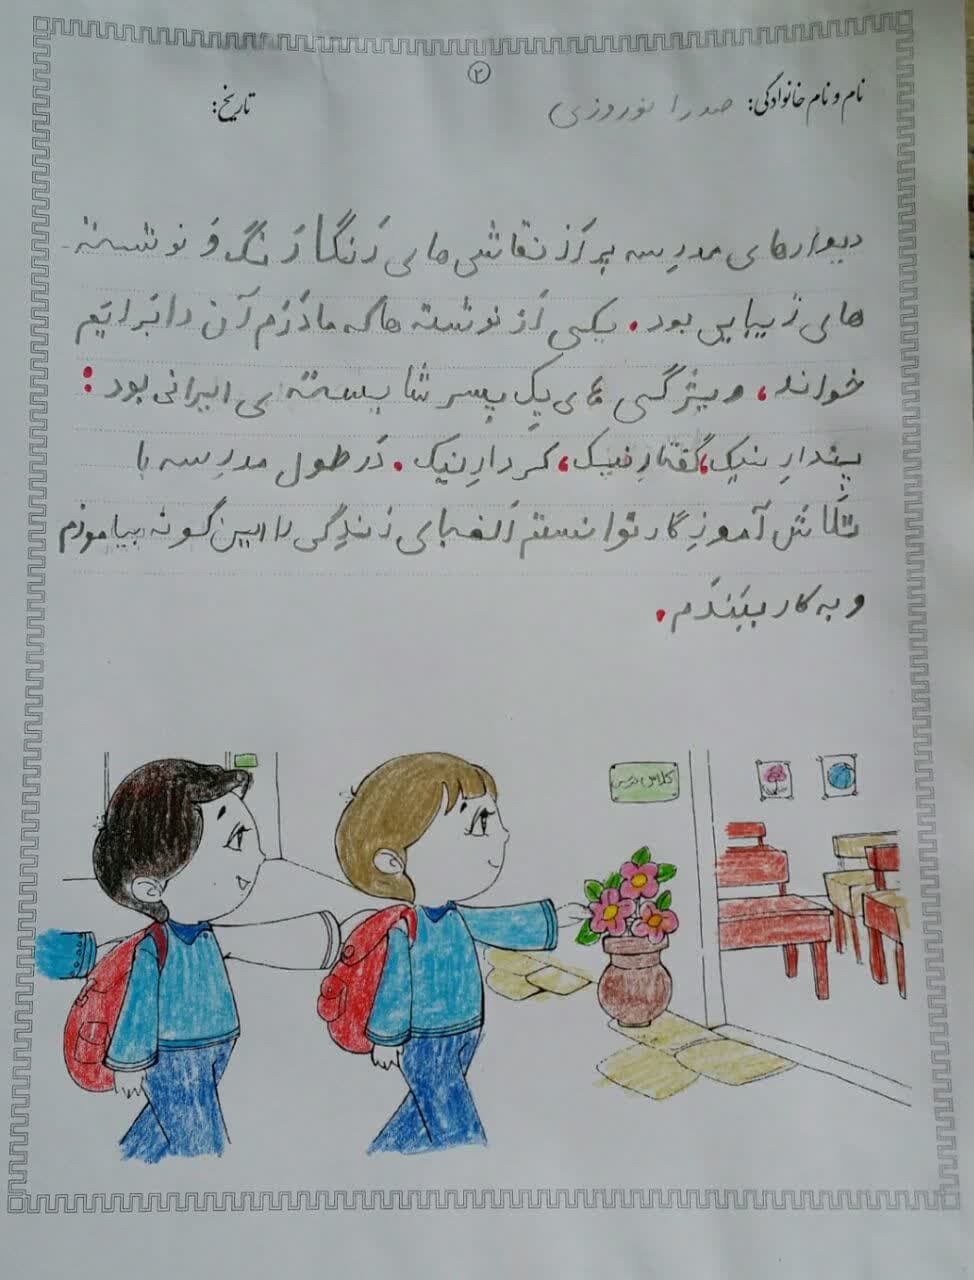 ۲
نام و نام خانوادگی: صدرا نوروزی
تاریخ:
دیوارهای مدرِسه پر اَز نقاشی های رَنگارَنگ وَ نوشته
های زیبایی بود. یکی اَز نوشته ها که مادَرَم آن را بَرایَم
خواند، ویژگی های یِک پِسر شایسته ی ایرانی بود:
پندارِ نیک، گفتارِ نیک، کردارِ نیک. دَر طول مدرِسه با
تَلاش آموزِگار توانستم اَلفبای زندِگی را این گونه بیاموزم
و به کار ببَندَم.
کلاس درس